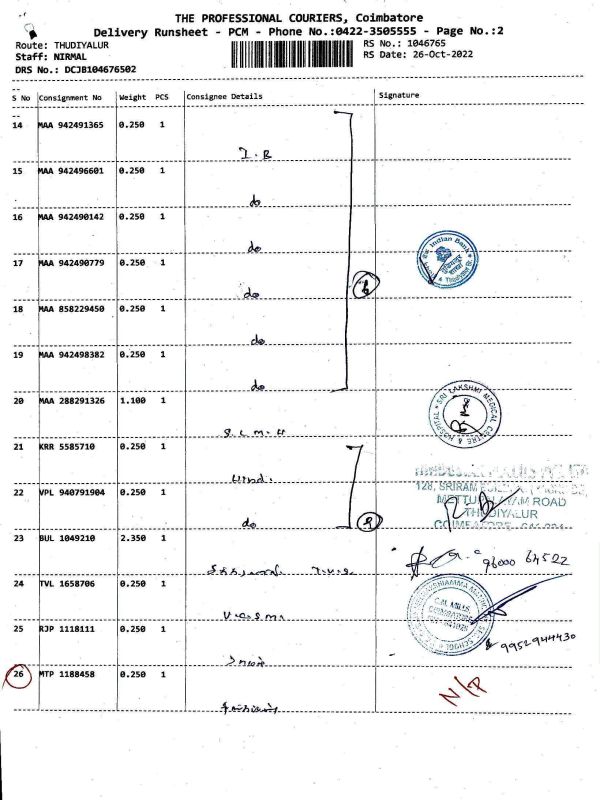 THE PROFESSIONAL COURIERS, Coimbatore
Delivery Runsheet - PCM - Phone No.:0422-3505555 - Page No.:2
Route: THUDIYALUR
RS No.: 1046765
Staff: NIRMAL
RS Date: 26-Oct-2022
DRS No.: DCJB104676502
S No Consignment No Weight PCS Consignee Details Signature
14 MAA 942491365 0.250 1
I.B
15 MAA 942496601 0.250 1
do
16 MAA 942490142 0.250 1
do
17 MAA 942490779 0.250 1
do
18 MAA 858229450 0.250 1
do
19 MAA 942498382 0.250 1
do
Indian Bank
20 MAA 288291326 1.100 1
S.L.M.H
SRI LAKSHMI MEDICAL CENTRE & HOSPITAL
21 KRR 5585710 0.250 1
Hind.
22 VPL 940791904 0.250 1
do
128, SRIRAM
METTUPALAYAM ROAD
THUDIYALUR
23 BUL 1049210 2.350 1
96000 64522
24 TVL 1658706 0.250 1
V.C.S.M.
C.M. MILLS
25 RJP 1118111 0.250 1
9952944430
26 MTP 1188458 0.250 1
N/P